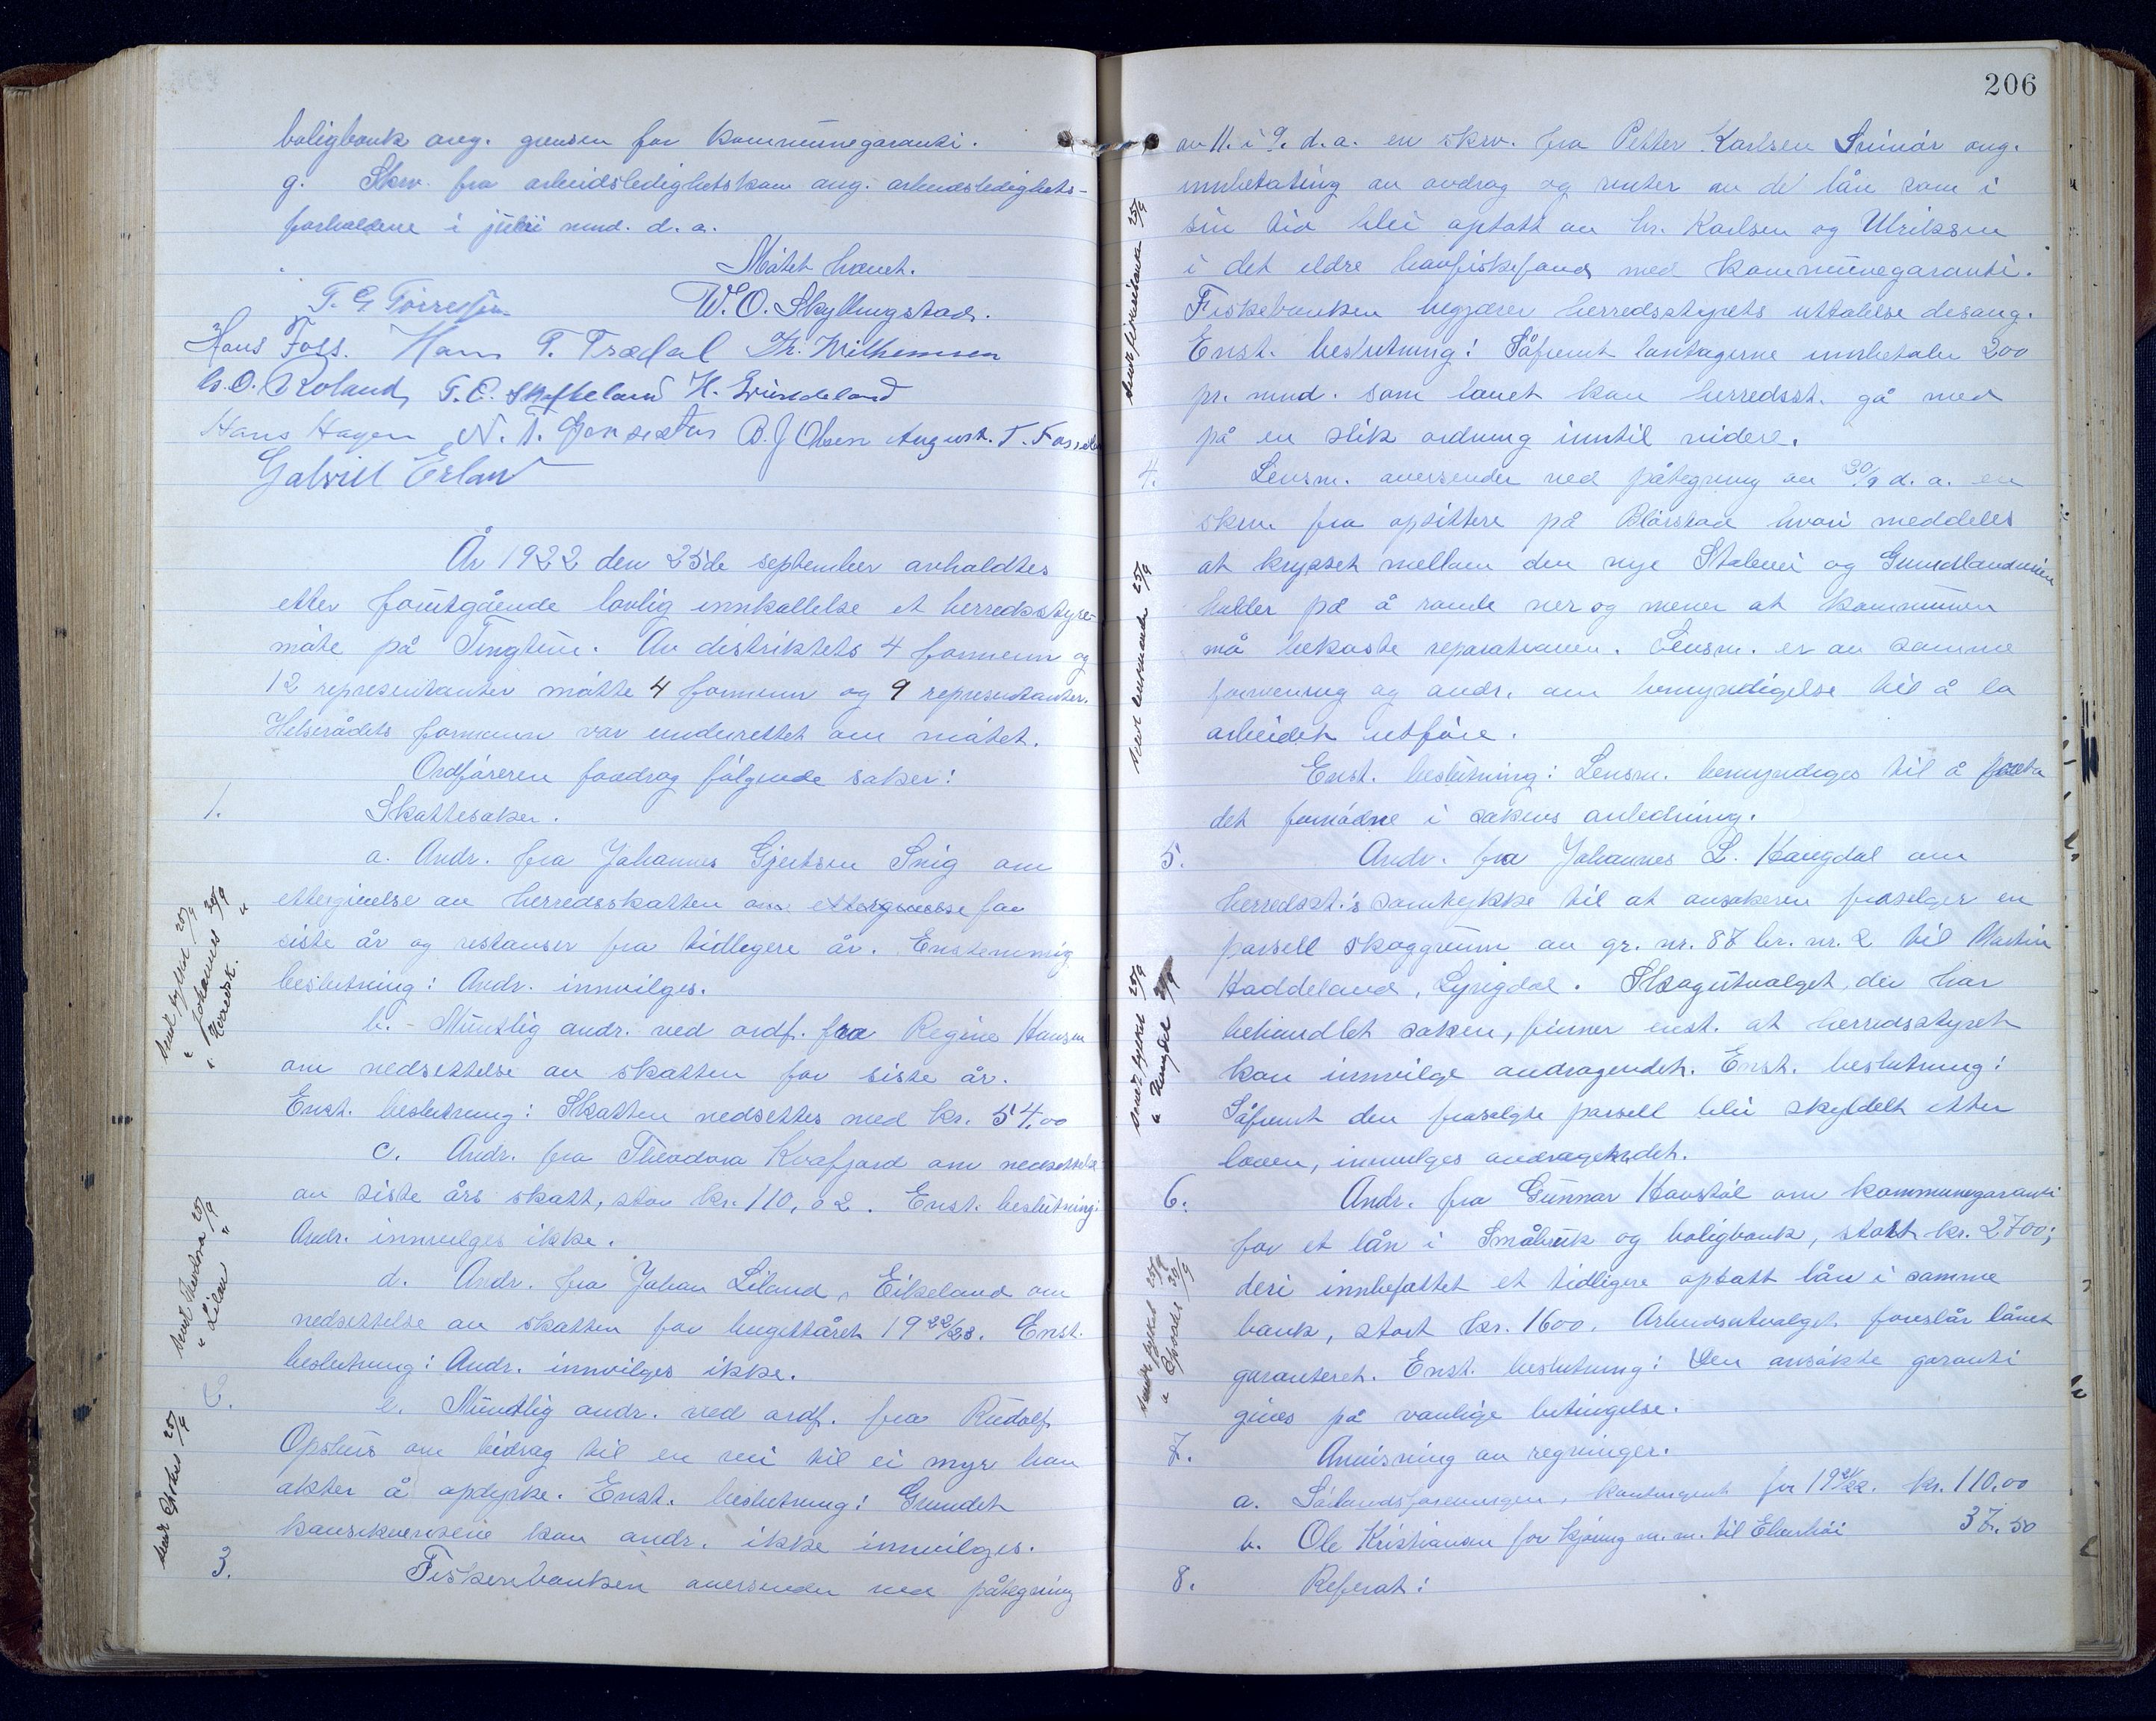 boligbank ang. grensen for kommunegaranti.
g. Skrv. fra arbeidsledighetskom ang. arbeidsledighets-
forholdene i juli mnd. d. a.
Møtet hævet.
T. G. Tørressen
W. O. Skyllingstad.
Hans Foss. Hans T. Trædal Th. Wilhemsen
O. Roland, T. E. H. Svindeland
Hans Hagen N. T. B. J. Olsen August. T.
Gabriel Erland
År 1922 den 25de september avholdtes
etter forutgående lovlig innkallelse et herredsstyre-
møte på Tingtun. Av distriktets 4 formenn og
12 representanter møtte 4 formenn og 9 representanter.
Helserådets formann var underrettet om møtet.
Ordføreren foredrog følgende saker:
1. Skattesaker.
a. Andr. fra Johannes Gjertsen Snig om
ettergivelse av herredsskatten om ettergivelse for
siste år og restanser fra tidligere år. Enstemmig
beslutning: Andr. innvilges.
b. - Muntlig andr. ved ordf. fra Regine Hansen
om nedsettelse av skatten for siste år.
Enst. beslutning: Skatten nedsettes med kr. 54,00
c. Andr. fra Theodora Kvafjord om nedsettelse
av siste års skatt, stor kr. 110,02. Enst. beslutning:
Andr. innvilges ikke.
d. Andr. fra Johan Liland, Eikeland om
nedsettelse av skatten for bugettåret 1922/23. Enst.
beslutning: Andr. innvilges ikke.
2. e. Muntlig andr. ved ordf. fra Rudolf
Opshus om bidrag til en vei til ei myr han
akter å opdyrke. Enst. beslutning: Grundet
konsekvensene kan andr. ikke innvilges.
3. Fiskeribanken oversender ved påtegning
sendt fylket 25/9
" Johannes 30/9
" Herredsk. "
sendt Theodora 25/9
" Liland "
sendt Opshus 25/9
206
av 11. i 9. d. a. en skrv. fra Petter Karlsen ang.
innbetaling av avdrag og renter av de lån som i
sin tid blei optatt av hr. Karlsen og Ulriksen
i det eldre havfiskefond med kommunegaranti.
Fiskebanken begjærer herredsstyrets uttalelse desang.
Enst. beslutning: Såfremt lantagerne innbetaler 200
pr. mnd. som lovet kan herredsst. gå med
på en slik ordning inntil videre.
4. Lensm. oversender ved påtegning av 20/9 d. a. en
skrv. fra opsittere på Blørstad hvori meddeles
at krysset mellom den nye Stalvei og
holder på å ramle ner og mener at kommunen
må bekoste reparationen. Lensm. er av samme
formening og andr. om bemyndigelse til å la
arbeidet utføre.
Enst. beslutning: Lensm. bemyndiges til å foreta
det fornødne i sakens anledning.
5. Andr. fra Johannes L. Haugdal om
herredsst.'s samtykke til at ansøkeren fraselger en
parsell skoggrunn av gr. nr. 87 br. nr. 2 til Martin
Haddeland, Lyngdal. Skogutvalget, der har
behandlet saken, finner enst. at herredsstyret
kan innvilge andragendet. Enst. beslutning:
Såfremt den fraselgte parsell blir skyldelt etter
loven, innvilges andragendet.
6. Andr. fra Gunnar Havstøl om kommunegaranti
for et lån i Småbruk og boligbank, stort kr. 2700;
deri innbefattet et tidligere optatt lån i samme
bank, stort kr. 1600. Arbeidsutvalget foreslår lånet
garanteret. Enst. beslutning: Den ansøkte garanti
gives på vanlige betingelse.
7. Anvisning av regninger.
a. Sørlandsforeningen, kontingent for 1921/22. kr. 110.00
b. Ole Kristiansen for kjøring m. m. til 37.50
8. Referat:
sendt fiskeribanken 25/9
sendt lensmannen 25/9
sendt fylket 25/9
" Haugdal 30/9
sendt fylket 25/9